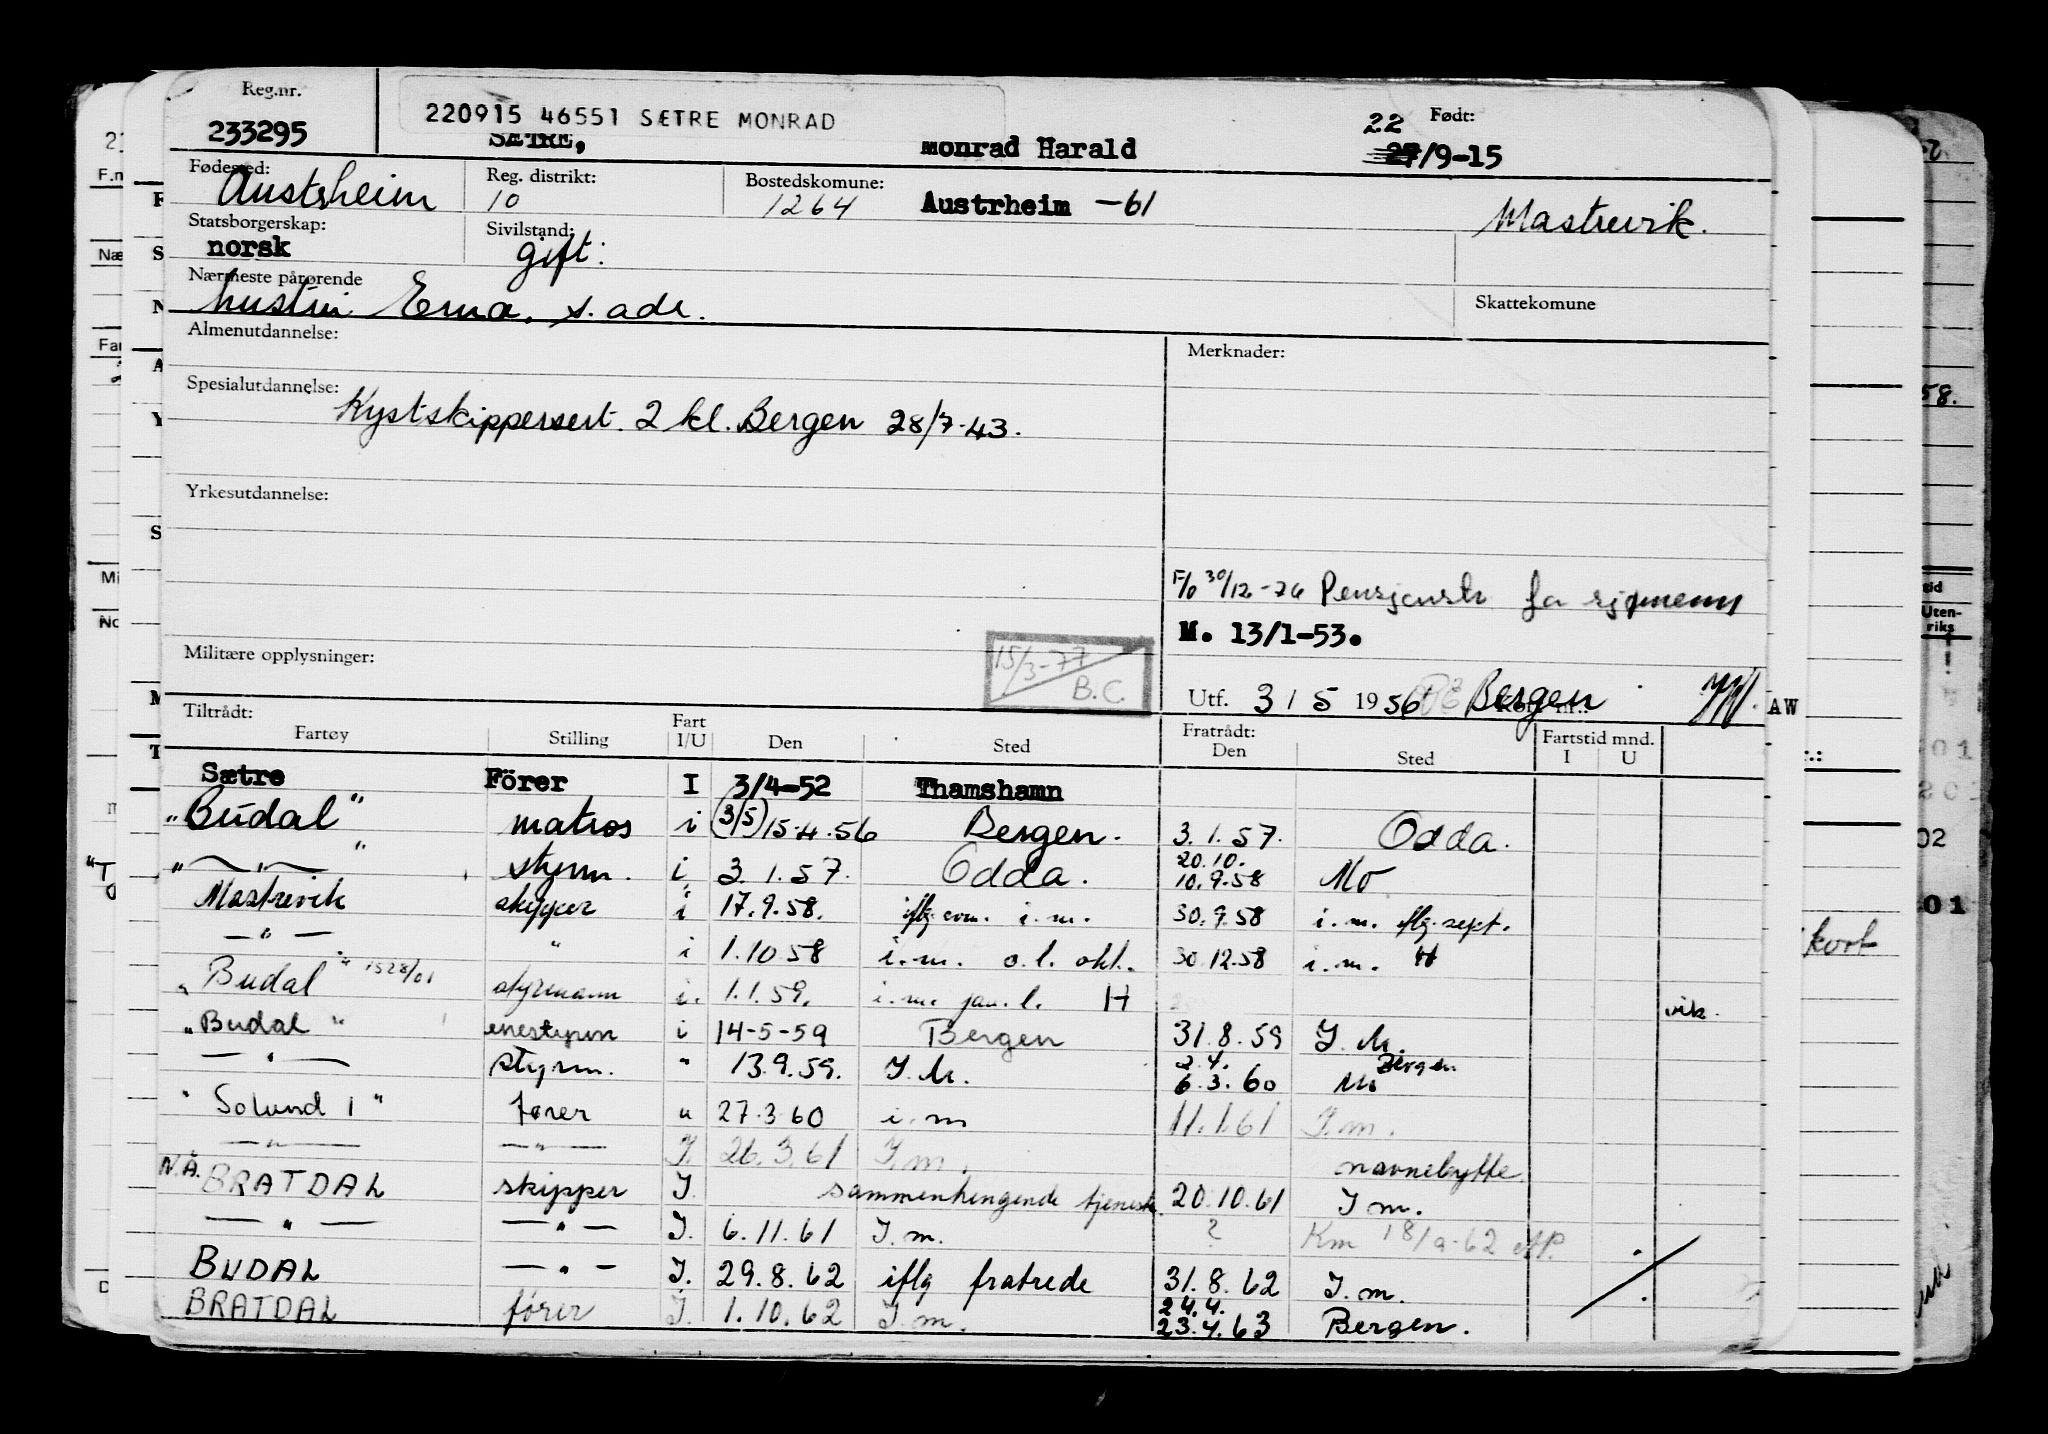 Reg.nr.
233295
220915 46551 SÆTRE MONRAD
SÆTRE, Monrad Harald
Født:
22
27/9-15
Fødested: Austrheim
Reg. distrikt: 10
Bostedskomune: 1264 Austrheim -61
Mastrevik.
Statsborgerskap: norsk
Sivilstand: gift.
Nærmeste pårørende
hustru Erna, s. adr.
Skattekomune
Almenutdannelse:
Merknader:
Spesialutdannelse:
Kystskippersert. 2 kl. Bergen 28/7-43.
Yrkesutdannelse:
F/o 30/12-76 Pensjonstr for sjømenn
M. 13/1-53.
Militære opplysninger:
15/3-77
B.C.
Utf. 3 / 5 1956 Bergen
AW
Tiltrådt:
Fartøy Stilling Fart I/U Den Sted Fratrådt: Den Sted Fartstid mnd. I U
Sætre Förer I 3/4-52 Thamshamn
"Budal" matros i (3/5) 15.4.56 Bergen. 3.1.57. Odda.
" — " — " styrm. i 3.1.57. Odda. 20.10. 10.9.58 Mo
Mastrevik skipper i 17.9.58. iflg. i.m. 30.9.58 i.m. iflg. sept.
— " — " i 1.10.58 i.m. o.l. okt. 30.12.58 i.m. H
"Budal" 1528/01 styrmann i. 1.1.59. i.m. jan. l. H vik.
"Budal" enestyrm i 14-5-59 Bergen 31.8.59 I.M.
— " — styrm. " 13.9.59. I.M. 2.4. Bergen
6.3.60 Mo
"Solund 1" fører " 27.3.60 i.m 11.1.61 I.m.
— " — — " — I. 26.3.61 I.m. navnebytte
N.Å. BRATDAL skipper I. sammenhengende tjeneste. 20.10.61 I m.
— " — — " — I. 6.11.61 I.m. ? Km 18/9-62
BUDAL — " — I. 29.8.62 iflg fratrede 31.8.62 I.m.
BRATDAL fører I. 1.10.62 I.m. 24.4. 23.4.63 Bergen.